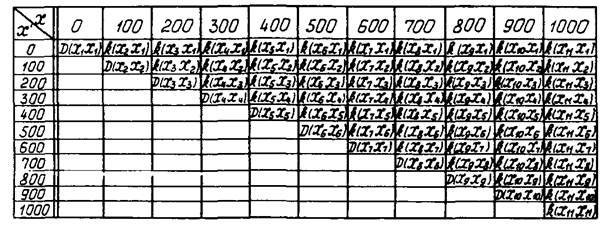 x' x 0 100 200 300 400 500 600 700 800 900 1000
0 D(x₁x₁) k(x₂x₁) k(x₃x₁) k(x₄x₁) k(x₅x₁) k(x₆x₁) k(x₇x₁) k(x₈x₁) k(x₉x₁) k(x₁₀x₁) k(x₁₁x₁)
100 D(x₂x₂) k(x₃x₂) k(x₄x₂) k(x₅x₂) k(x₆x₂) k(x₇x₂) k(x₈x₂) k(x₉x₂) k(x₁₀x₂) k(x₁₁x₂)
200 D(x₃x₃) k(x₄x₃) k(x₅x₃) k(x₆x₃) k(x₇x₃) k(x₈x₃) k(x₉x₃) k(x₁₀x₃) k(x₁₁x₃)
300 D(x₄x₄) k(x₅x₄) k(x₆x₄) k(x₇x₄) k(x₈x₄) k(x₉x₄) k(x₁₀x₄) k(x₁₁x₄)
400 D(x₅x₅) k(x₆x₅) k(x₇x₅) k(x₈x₅) k(x₉x₅) k(x₁₀x₅) k(x₁₁x₅)
500 D(x₆x₆) k(x₇x₆) k(x₈x₆) k(x₉x₆) k(x₁₀x₆ k(x₁₁x₆)
600 D(x₇x₇) k(x₈x₇) k(x₉x₇) k(x₁₀x₇) k(x₁₁x₇)
700 D(x₈x₈) k(x₉x₈) k(x₁₀x₈) k(x₁₁x₈)
800 D(x₉x₉) k(x₁₀x₉) k(x₁₁x₉)
900 D(x₁₀x₁₀) k(x₁₁x₁₀)
1000 k(x₁₁x₁₁)